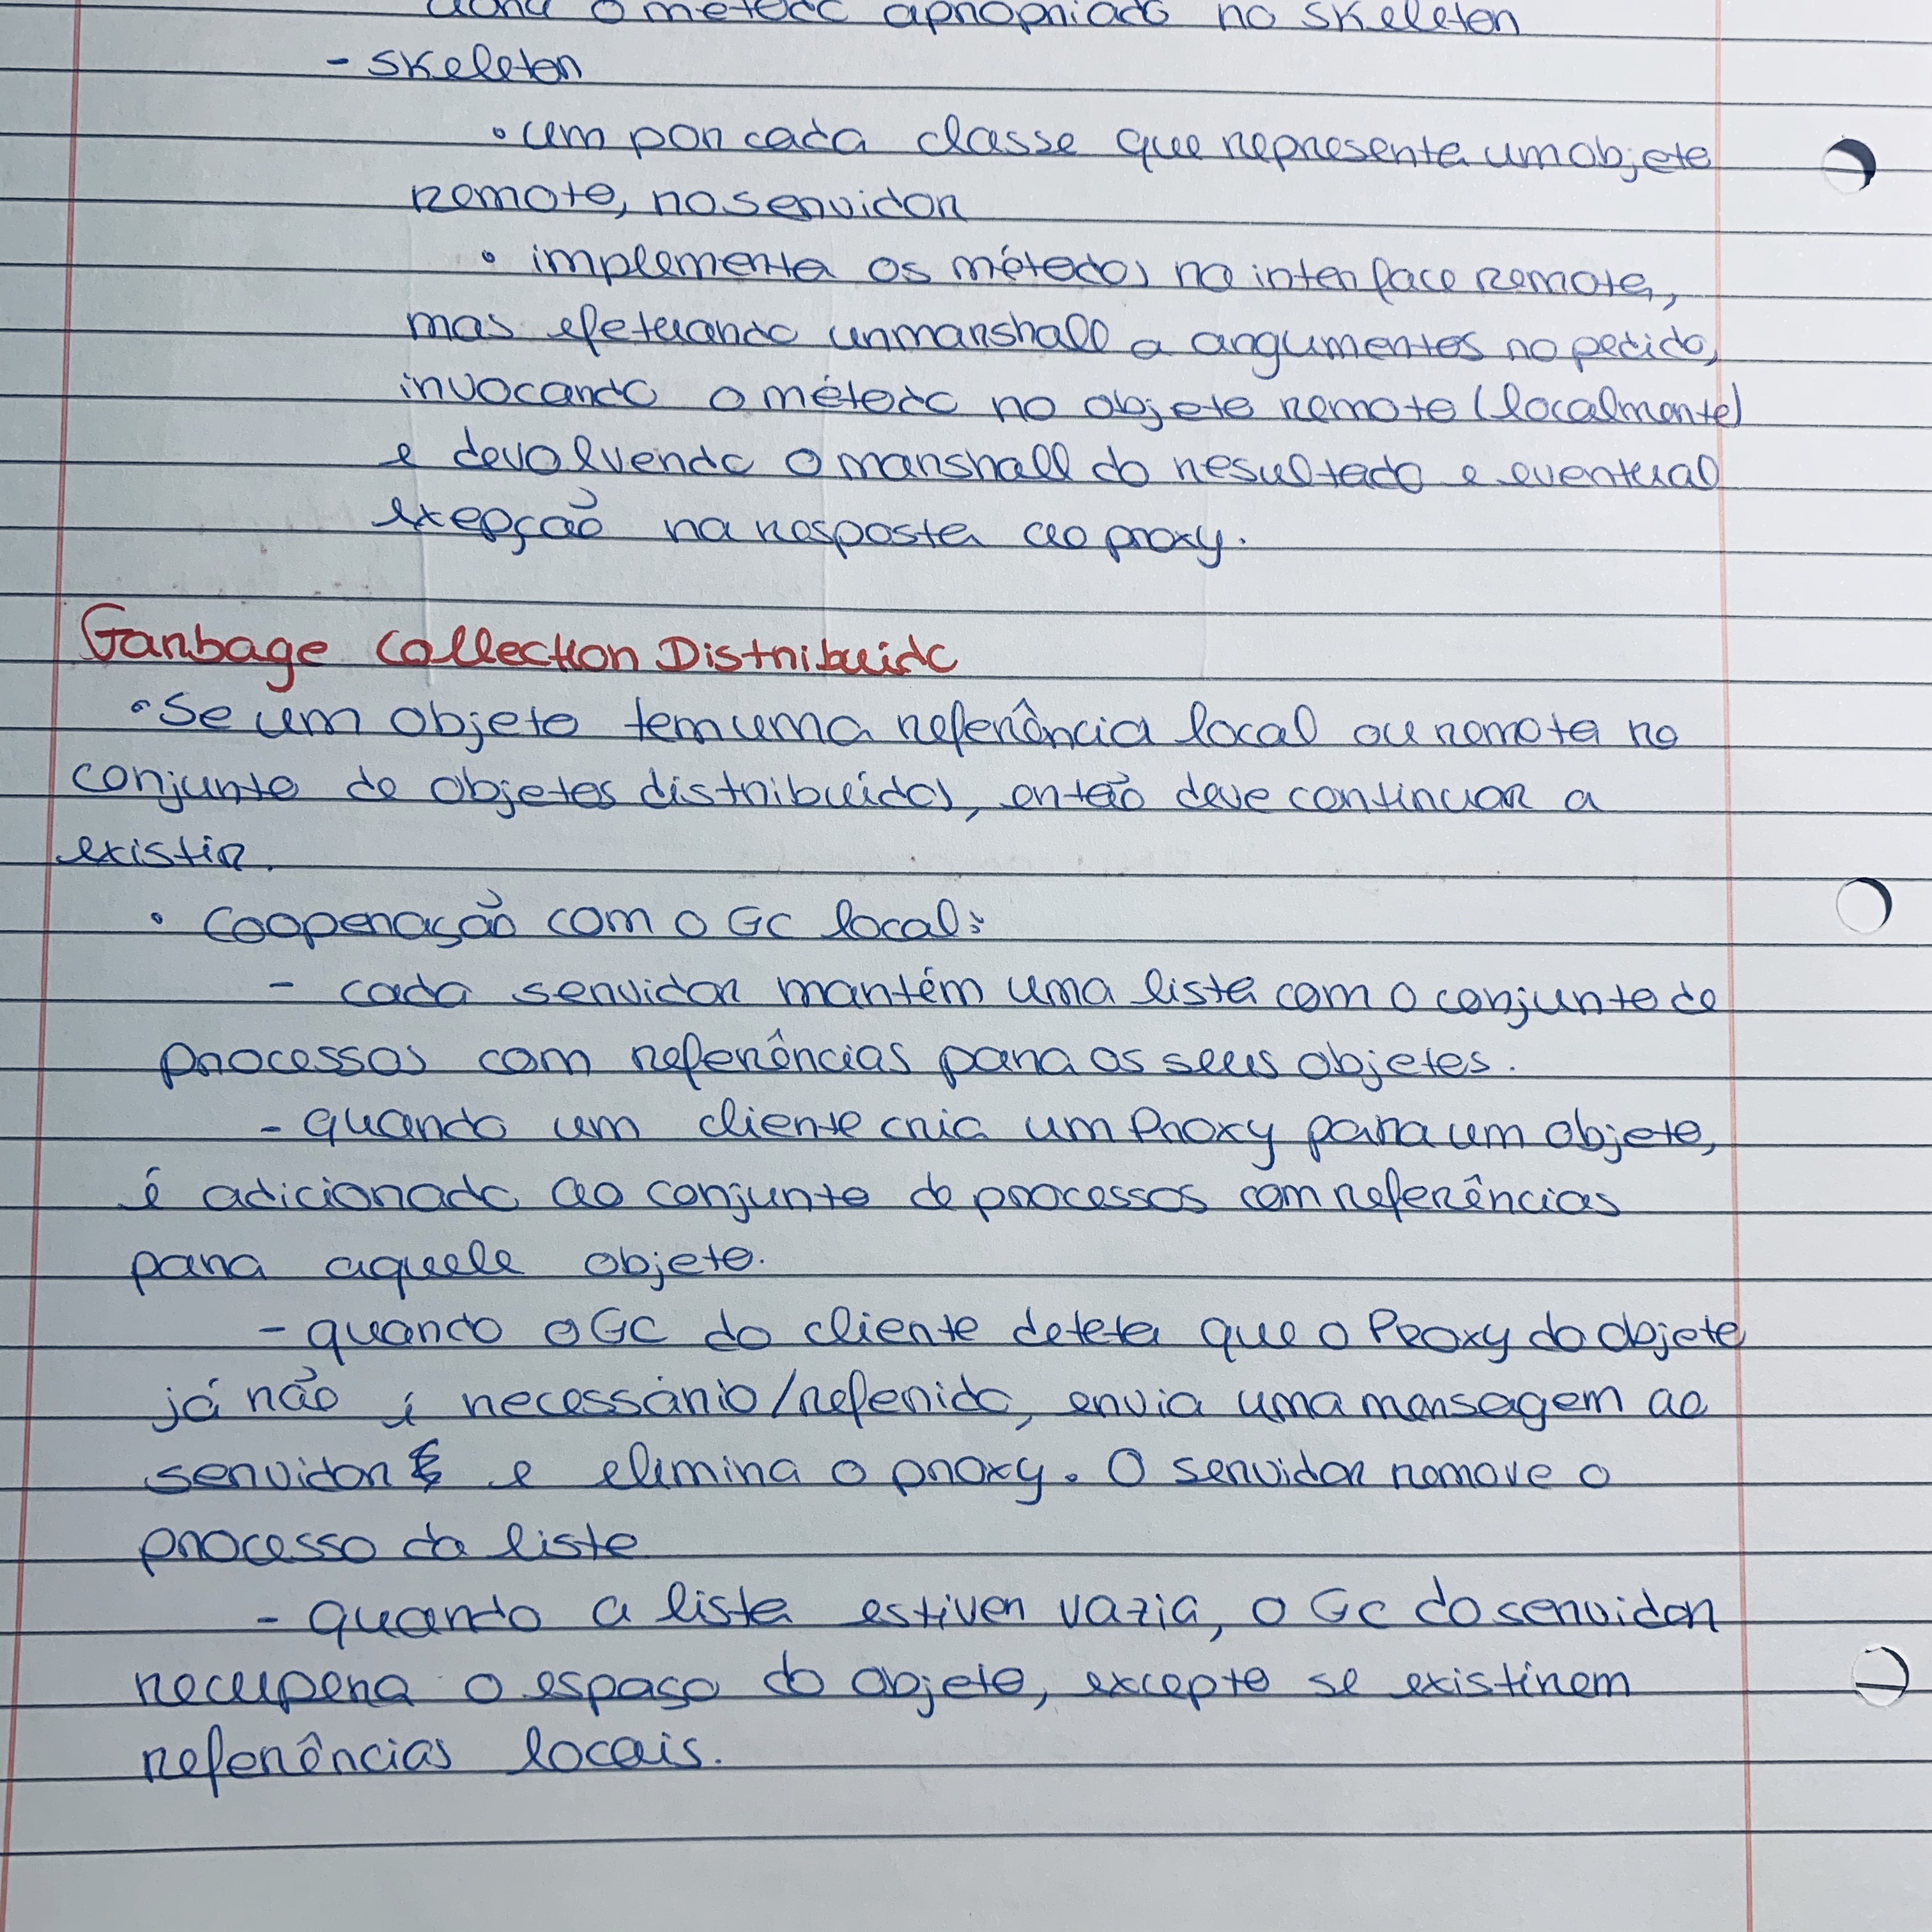 o método apropriado no skeleton
- skeleton
• um por cada classe que representa um objeto
remoto, no servidor
• implementa os métodos na interface remota,
mas efetuando unmarshall a argumentos no pedido,
invocando o método no objeto remoto (localmente)
e devolvendo o marshall do resultado e eventual
exepção na resposta ao proxy.
Garbage Collection Distribuído
• Se um objeto tem uma referência local ou remota no
conjunto de objetos distribuídos, então deve continuar a
existir.
• Cooperação com o GC local:
- cada servidor mantém uma lista com o conjunto de
processos com referências para os seus objetos.
- quando um cliente cria um Proxy para um objeto,
é adicionado ao conjunto de processos com referências
para aquele objeto.
- quando o GC do cliente deteta que o Proxy do objeto
já não é necessário/referido, envia uma mensagem ao
servidor e elimina o proxy. O servidor remove o
processo da lista
- quando a lista estiver vazia, o GC do servidor
recupera o espaço do objeto, excepto se existirem
referências locais.